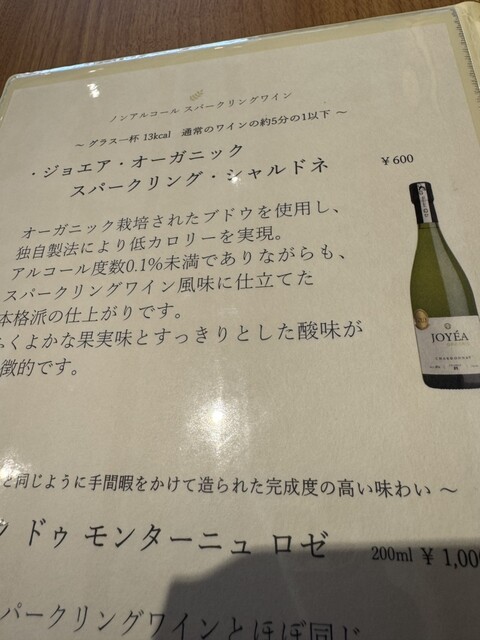 ノンアルコール スパークリングワイン
～ グラス一杯 13kcal 通常のワインの約5分の1以下 ～
・ジョエア・オーガニック
スパークリング・シャルドネ ¥600
オーガニック栽培されたブドウを使用し、
独自製法により低カロリーを実現。
アルコール度数0.1%未満でありながらも、
スパークリングワイン風味に仕立てた
本格派の仕上がりです。
くよかな果実味とすっきりとした酸味が
徴的です。
JOYÉA
CHARDONNAY
と同じように手間暇をかけて造られた完成度の高い味わい ～
ドゥ モンターニュ ロゼ 200ml ¥1,00
パークリングワインとほぼ同じ